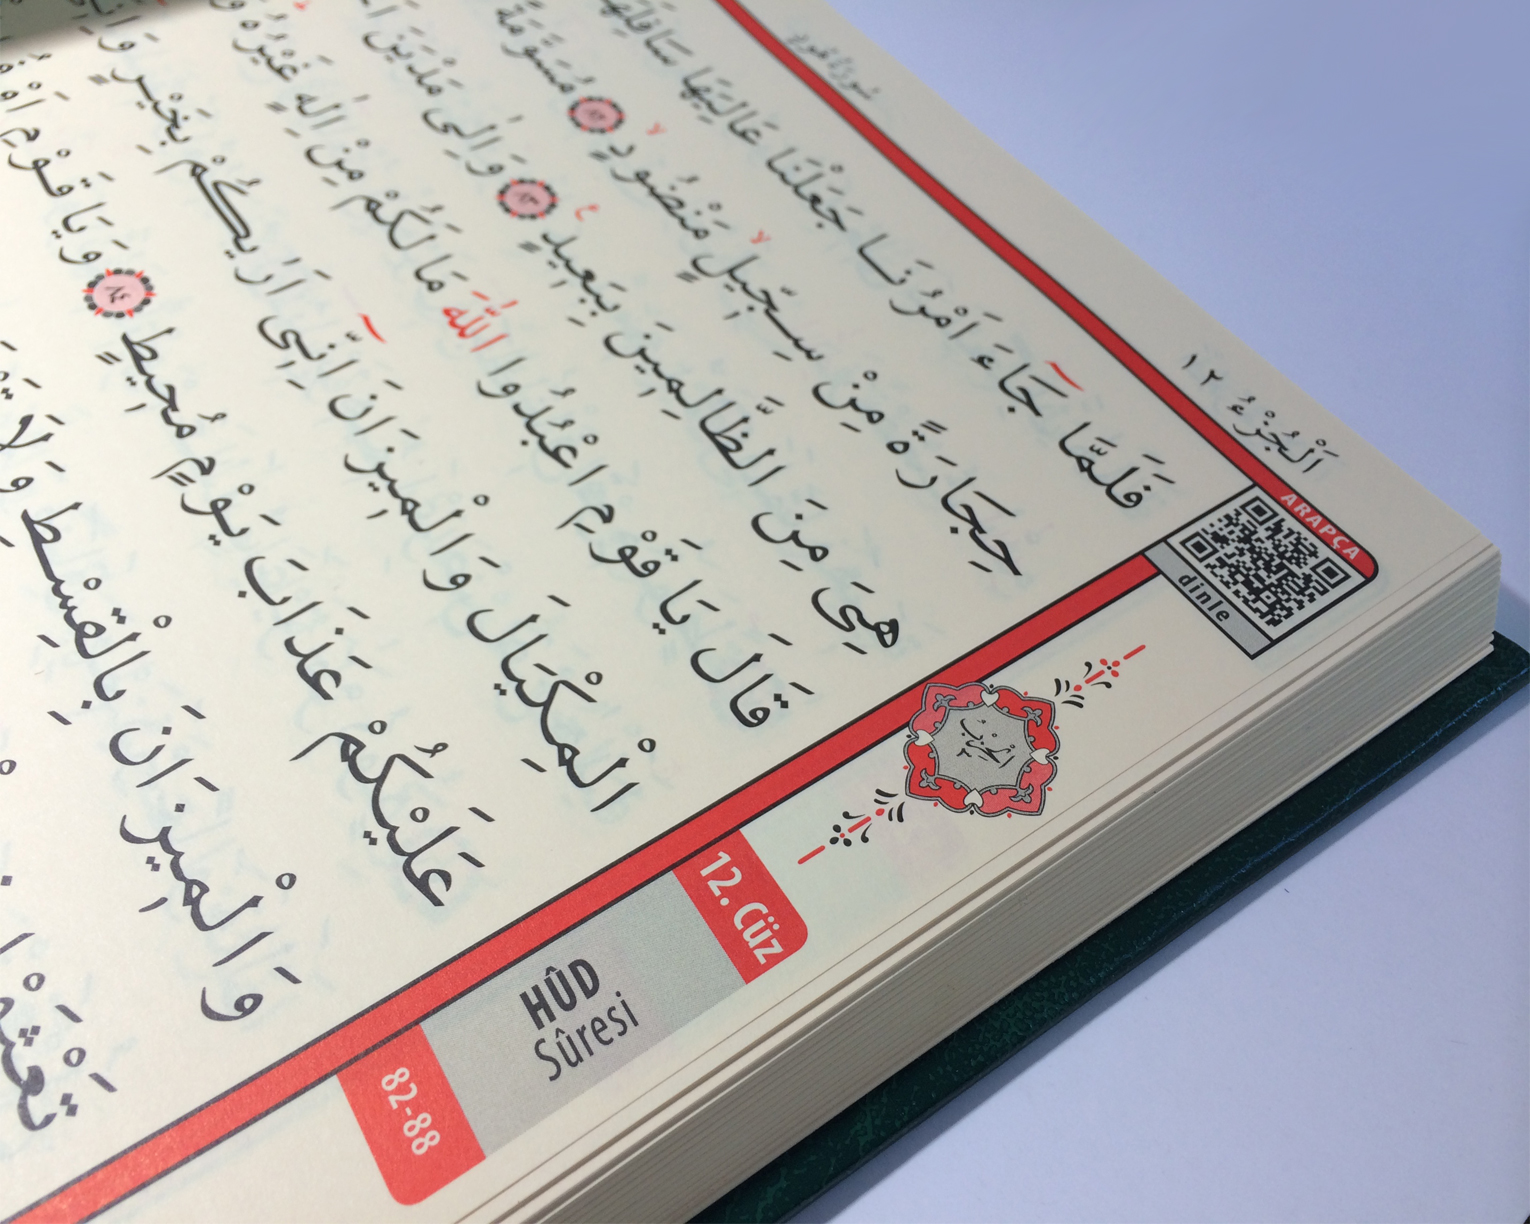 سُورَةُ هُودٍ
اَلْجُزْءُ ١٢
ARAPÇA
dinle
فَلَمَّا جَاءَ اَمْرُنَا جَعَلْنَا عَالِيَهَا سَافِلَهَا
حِجَارَةً مِنْ سِجّٖيلٍ مَنْضُودٍ ٨٢ مُسَوَّمَةً
هِيَ مِنَ الظَّالِمٖينَ بِبَعٖيدٍ ٨٣ وَاِلٰى مَدْيَنَ
قَالَ يَا قَوْمِ اعْبُدُوا اللّٰهَ مَا لَكُمْ مِنْ اِلٰهٍ غَيْرُهُ
الْمِكْيَالَ وَالْمٖيزَانَ اِنّٖى اَرٰيكُمْ بِخَيْرٍ وَاِنّٖى
عَلَيْكُمْ عَذَابَ يَوْمٍ مُحٖيطٍ ٨٤ وَيَا قَوْمِ
وَالْمٖيزَانَ بِالْقِسْطِ وَلَا
الحزب
٢
12. Cüz
HÛD
Sûresi
82-88